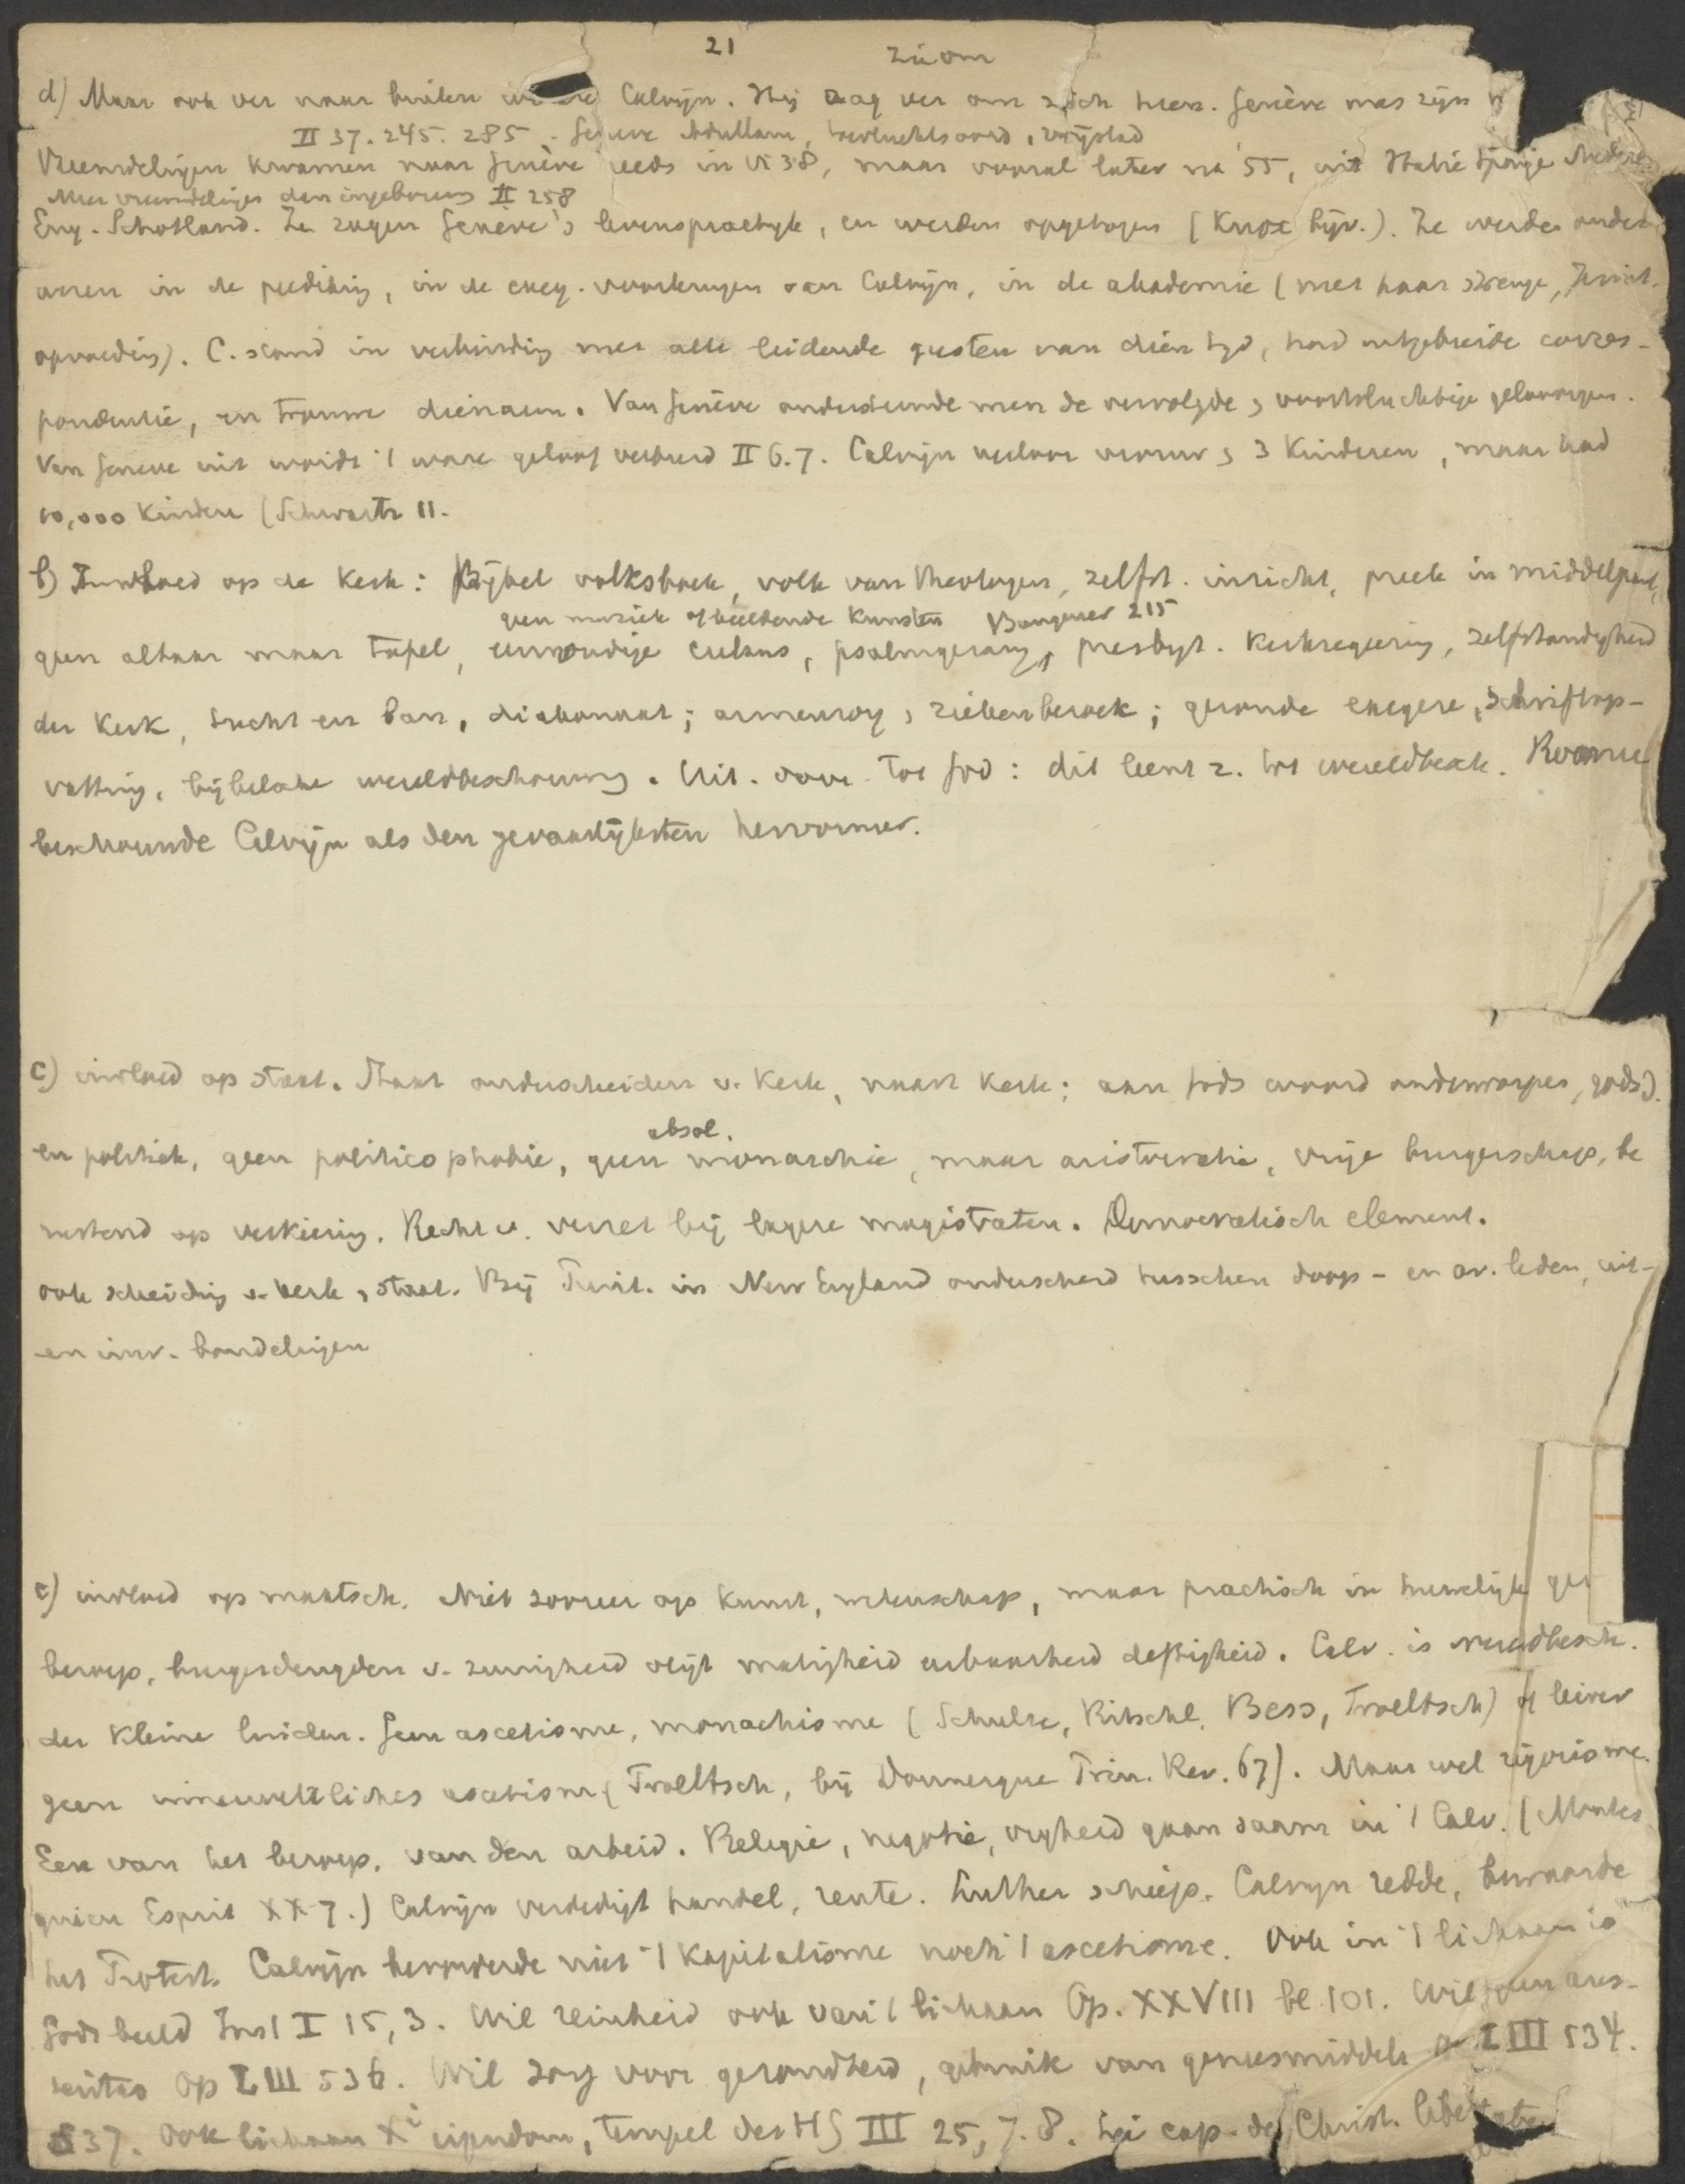 21
zijom
d) Maar ook ver naar buiten Calvijn. Hij zag ver om zich heen. Genève was zijn
II 37. 245. 285 - Geneve Adullam, toevluchtsoord, vrijstad
Vreemdelingen kwamen naar Genève reeds in 38, maar vooral later na '55, uit Italië Spanje Nederl
Meer vreemdelingen dan ingeborens II 258
Eng. Schotland. Ze zagen Genève's levenspractijk, en werden opgetogen (Knox bijv.). Ze werden onder-
wezen in de prediking, in de exeg. voorlezingen van Calvijn, in de akademie (met haar strenge,
opvoeding). C. stond in verbinding met alle leidende geesten van dien tijd, had uitgebreide corres-
pondentie, en trouwe dienaren. Van Genève ondersteunde men de vervolgde, voortvluchtige geloovigen.
Van Geneve uit wordt 't ware geloof verbreid II 6.7. Calvijn verloor vrouw, 3 kinderen, maar had
10,000 kinderen (Schwartz 11.
b) Invloed op de Kerk: Bijbel volksboek, volk van theologen, zelfst. inzicht, preek in middelpunt,
geen muziek of beeldende kunsten Bungener 215
geen altaar maar tafel, eenvoudige cultus, psalmgezang, presbyt. kerkregeering, zelfstandigheid
der kerk, tucht en ban, diakonaat; armenzorg, ziekenbezoek; gezonde exegese, Schriftop-
vatting, bijbelsche wereldbeschouwing. Uit. door. tot God: dit leent z. tot wereldbesch. Rome
beschouwde Calvijn als den gevaarlijksten hervormer.
c) invloed op staat. Staat onderscheiden v. Kerk, naast Kerk; aan Gods woord onderworpen, godsd.
absol.
en politiek, geen politicophobie, geen monarchie, maar aristocratie, vrije burgerschap, be
rustend op verkiezing. Recht v. verzet bij lagere magistraten. Democratisch element.
ook scheiding v. kerk, staat. Bij Purit. in New England onderscheid tusschen doop- en av. leden, uit-
en inw. handelingen
e) invloed op maatsch. Niet zoozeer op kunst, wetenschap, maar practisch in huwelijk
beroep, burgerdeugden v. zuinigheid vlijt matigheid eerbaarheid deftigheid. Calv. is wereldbesch.
der kleine luiden. Geen ascetisme, monachisme (Schulze, Ritschl, Bess, Troeltsch) of liever
geen innerweltliches ascetisme (Troeltsch, bij Doumergue Princ. Rev. 67). Maar wel rigorisme.
Eere van het beroep, van den arbeid. Religie, negotie, vrijheid gaan saam in 't Calv. (Montes
quieu Esprit XX 7.) Calvijn verdedigt handel, rente. Luther schiep. Calvijn redde, bewaarde
het Protest. Calvijn bevorderde niet 't kapitalisme noch 't ascetisme. Ook in 't lichaam is
Gods beeld Inst I 15, 3. Wil reinheid ook van 't lichaam Op. XXVIII bl 101. Wil geen aus-
teritas Op LIII 536. Wil zorg voor gezondheid, gebruik van genotmiddelen LIII 534.
537. Ook lichaam Xi eigendom, tempel des HG III 25, 7. 8. Zie cap. de Christ. libertate